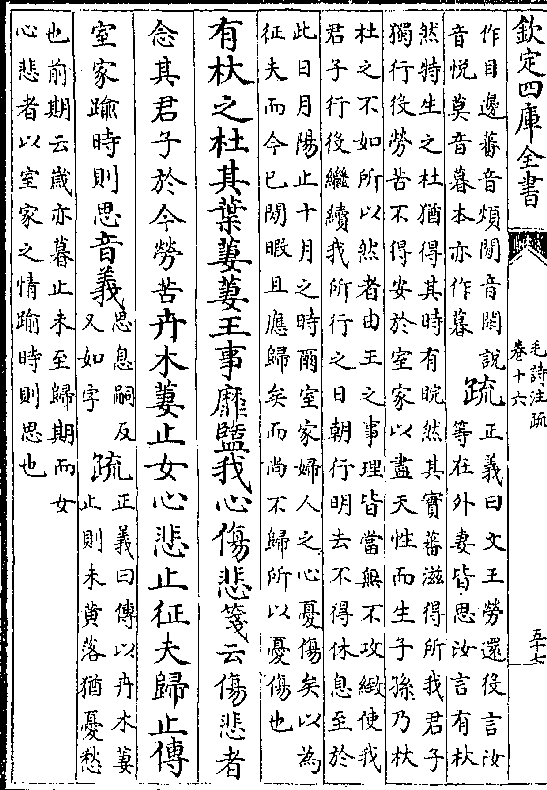 欽定四庫全書
毛詩注疏
卷十六
五十七
作目邊蕃音煩閑音閑說
音悅莫音暮本亦作暮
疏
正義曰文王勞還役言汝
等在外妻皆思汝言有杕
然特生之杜猶得其時有睆然其實蕃滋得所我君子
獨行役勞苦不得安於室家以盡天性而生子孫乃杕
杜之不如所以然者由王之事理皆當無不攻緻使我
君子行役繼續我所行之日朝行明去不得休息至於
此日月陽止十月之時爾室家婦人之心憂傷矣以為
征夫而今已閑暇且應歸矣而尚不歸所以憂傷也
有杕之杜其葉萋萋王事靡盬我心傷悲箋云傷悲者
念其君子於今勞苦卉木萋止女心悲止征夫歸止傳
室家踰時則思音義
思息嗣反
又如字
疏
正義曰傳以卉木萋
止則未黄落猶憂愁
也前期云歲亦暮止未至歸期而女
心悲者以室家之情踰時則思也